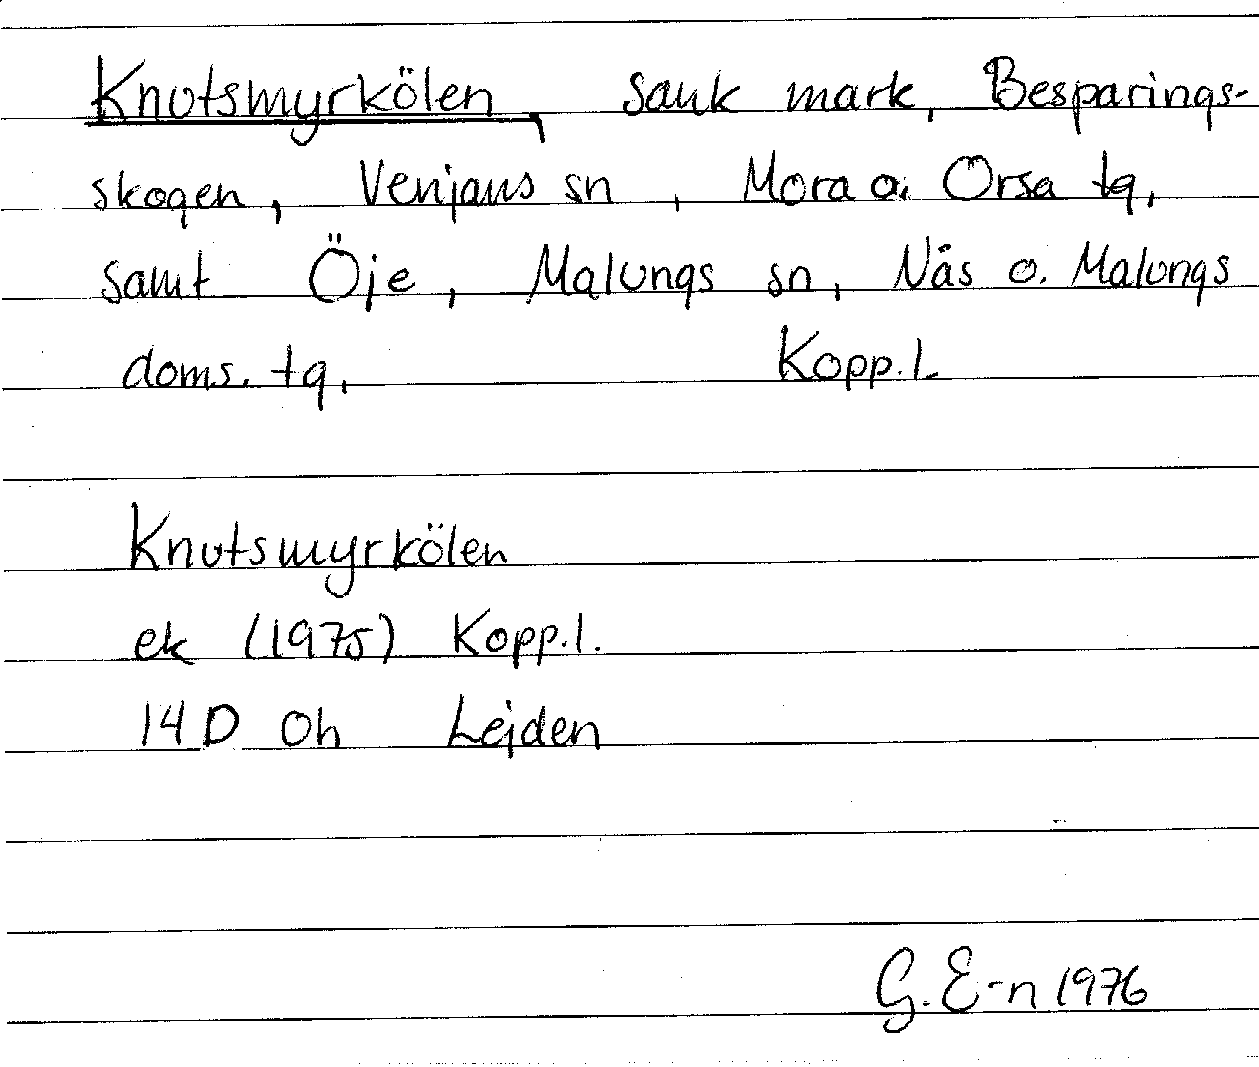 Knutsmyrkölen, sank mark, Besparings-
skogen, Venjans sn, Mora o. Orsa tg,
samt Öje, Malungs sn, Nås o. Malungs
doms. tg, Kopp.l.
Knutsmyrkölen
ek (1975) Kopp.l.
14D 0h Lejden
G. E-n 1976